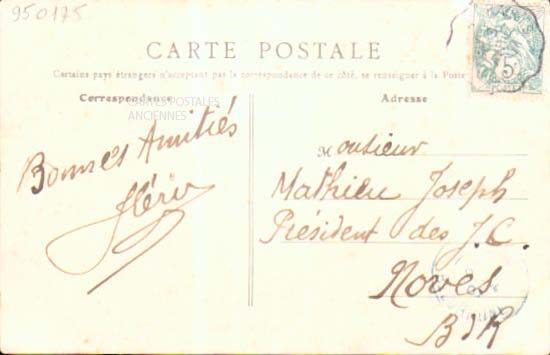 950175
CARTE POSTALE
Certains pays étrangers n'acceptant pas la correspondance de ce côté, se renseigner à la Poste
Correspondance
CARTES POSTALES
ANCIENNES
Bonnes Amitiés
Adresse
5
Monsieur
Mathieu Joseph
Président des J. C.
Noves
B d R